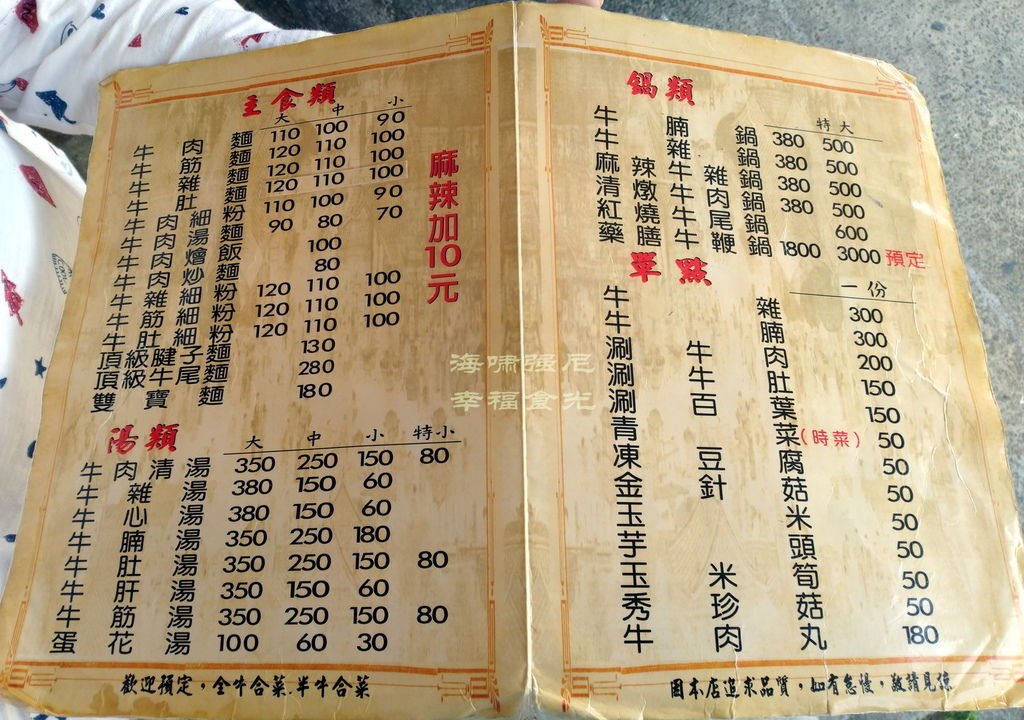 主食類
大 中 小
牛肉麵 110 100 90
牛筋麵 120 110 100
牛雜麵 120 110 100
牛肚麵 120 110 100
牛肉細粉 110 100 90
牛肉湯麵 90 80 70
牛肉燴飯 100
牛肉炒麵 80
牛雜細粉 120 110 100
牛筋細粉 120 110 100
牛肚細粉 120 110 100
頂級腱子麵 130
頂級牛尾麵 280
雙寶麵 180
麻辣加10元
湯類
大 中 小 特小
牛肉清湯 350 250 150 80
牛雜湯 380 150 60
牛心湯 380 150 60
牛腩湯 350 250 180
牛肚湯 350 250 150 80
牛肝湯 350 150 60
牛筋湯 350 250 150 80
蛋花湯 100 60 30
歡迎預定，全牛合菜.半牛合菜
鍋類
特大
牛腩鍋 380 500
牛雜鍋 380 500
麻辣牛雜鍋 380 500
清燉牛肉鍋 380 500
紅燒牛尾鍋 600
藥膳牛鞭鍋 1800 3000 預定
單點
一份
牛雜 300
牛腩 300
涮牛肉 200
涮牛肚 150
涮百葉 150
青菜(時菜) 50
凍豆腐 50
金針菇 50
玉米 50
芋頭 50
玉米筍 50
秀珍菇 50
牛肉丸 180
因本店追求品質，如有怠慢，敬請見諒
海嘯强尼
幸福食光